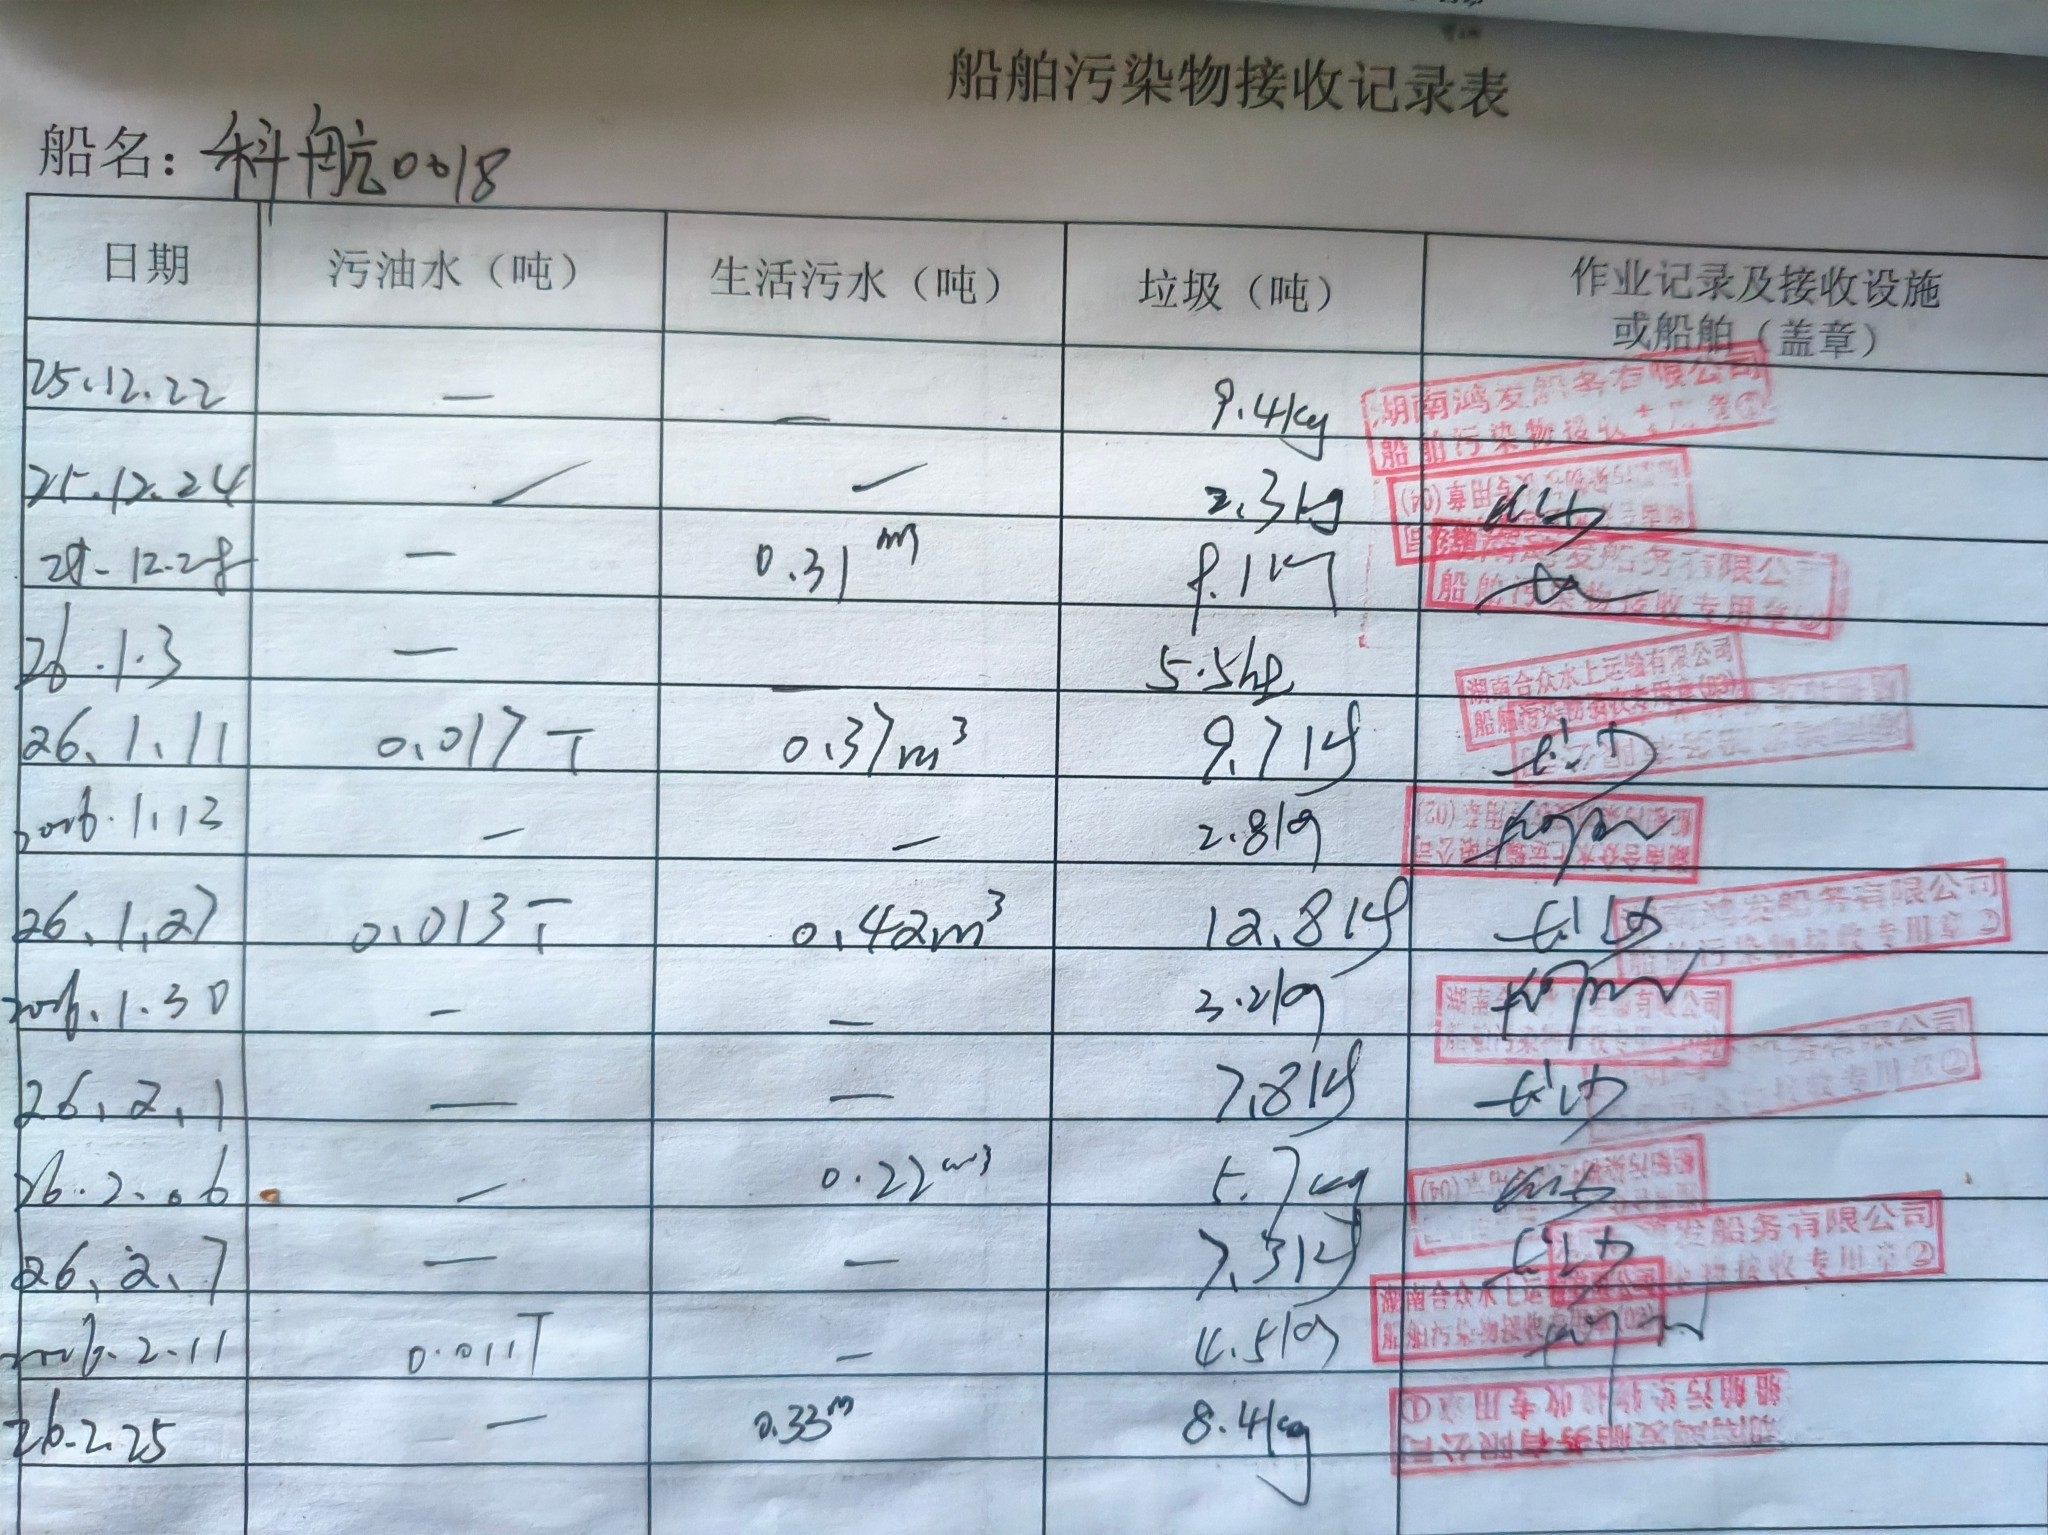 船舶污染物接收记录表
船名：科航0018
日期 污油水（吨） 生活污水（吨） 垃圾（吨） 作业记录及接收设施或船舶（盖章）
25.12.22 — — 9.4kg 湖南鸿发船务有限公司 船舶污染物接收专用章①
25.12.24 — — 2.3kg 专用章(04)
25.12.28 — 0.31m³ 9.1kg 发船务有限公司 船舶污染物接收专用章
26.1.3 — — 5.5kg 湖南合众水上运输有限公司 船舶污染物接收专用章(03)
26.1.11 0.017T 0.37m³ 9.7kg
2026.1.13 — — 2.8kg 湖南合众水上运输有限公司 (02)
26.1.27 0.013T 0.42m³ 12.8kg 鸿发船务有限公司 船舶污染物接收专用章②
2026.1.30 — — 3.2kg 湖南 运输有限公司 船舶污染物接收专用章
26.2.1 — — 7.8kg 务有限公司 接收专用章②
26.2.06 — 0.22m³ 5.7kg 船舶污染物 (04)
26.2.7 — — 7.3kg 发船务有限公司 接收专用章②
2026.2.11 0.011T — 4.5kg 湖南合众水上运 船舶污染物接收专用章
26.2.25 — 0.33m 8.4kg 船舶污染物接收专用章① 湖南鸿发船务有限公司